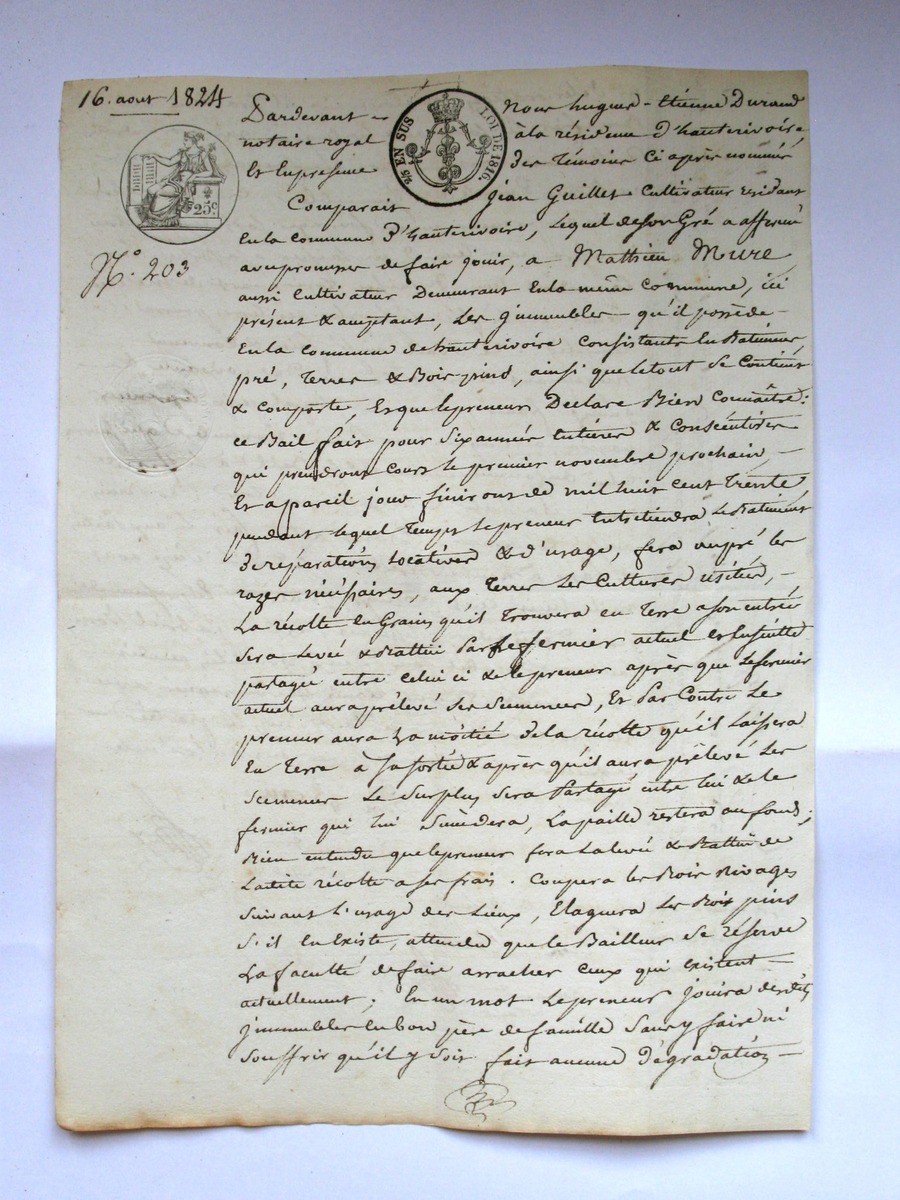 16. aout 1824
Pardevant Nous hugues-Etienne Durand
notaire royal à la résidence d'hauterivoire,
Et En présence des Témoins Ci après nommés
2/5 EN SUS LOI DE 1816.
25c
N.º 203
Comparait Jean Guillet Cultivateur residant
En la commune d'hauterivoire, Lequel de son Gré a affermé
avec promesse de faire jouir, a Mathieu Mure
aussi Cultivateur Demeurant En la même Commune, ici
présent & acceptant, Les jmmeubles qu'il possède
En la commune de hauterivoire Consistants En Batiments,
pré, Terres & Bois pins, ainsi que le tout Se Contient
& Comporte, Et que le preneur Declare Bien Connaître:
ce Bail fait pour Six années Entières & Consécutives
qui prendront Cours le premier novembre prochain,
Et a pareil jour finiront de mil huit cent Trente
pendant lequel Temps le preneur Entretiendra Les Batiments
De réparations locatives & d'usage, fera au pré les
razes nécéssaires, aux Terres Les Cultures usitées,
La récolte En Grains qu'il Trouvera en Terre a son entrée
Sera Levée & Battue Par le fermier actuel et Ensuitte
partagée entre Celui ci & le preneur après que Le fermier
actuel aura prélevé Ses Semences, Et Par Contre Le
preneur aura La moitié de la récolte qu'il Laissera
En Terre à Sa Sortie & après qu'il aura prélevé Les
Scemences Le Surplus Sera Partagé entre lui & le
fermier qui lui Succèdera, La paille restera au fonds;
Bien entendu que le preneur fera La levée & Battue de
Ladite récolte a Ses frais. Coupera les Bois Rivages
Suivant L'usage des Lieux, Elaguera Les Bois pins
S'il En Existe, attendu que le Bailleur Se réserve
La faculté de faire arracher Ceux qui Existent
actuellement; En un mot Le preneur jouira desdits
jmmeubles En bon père de famille Sans y faire ni
Souffrir qu'il y Soit fait aucune Dégradation